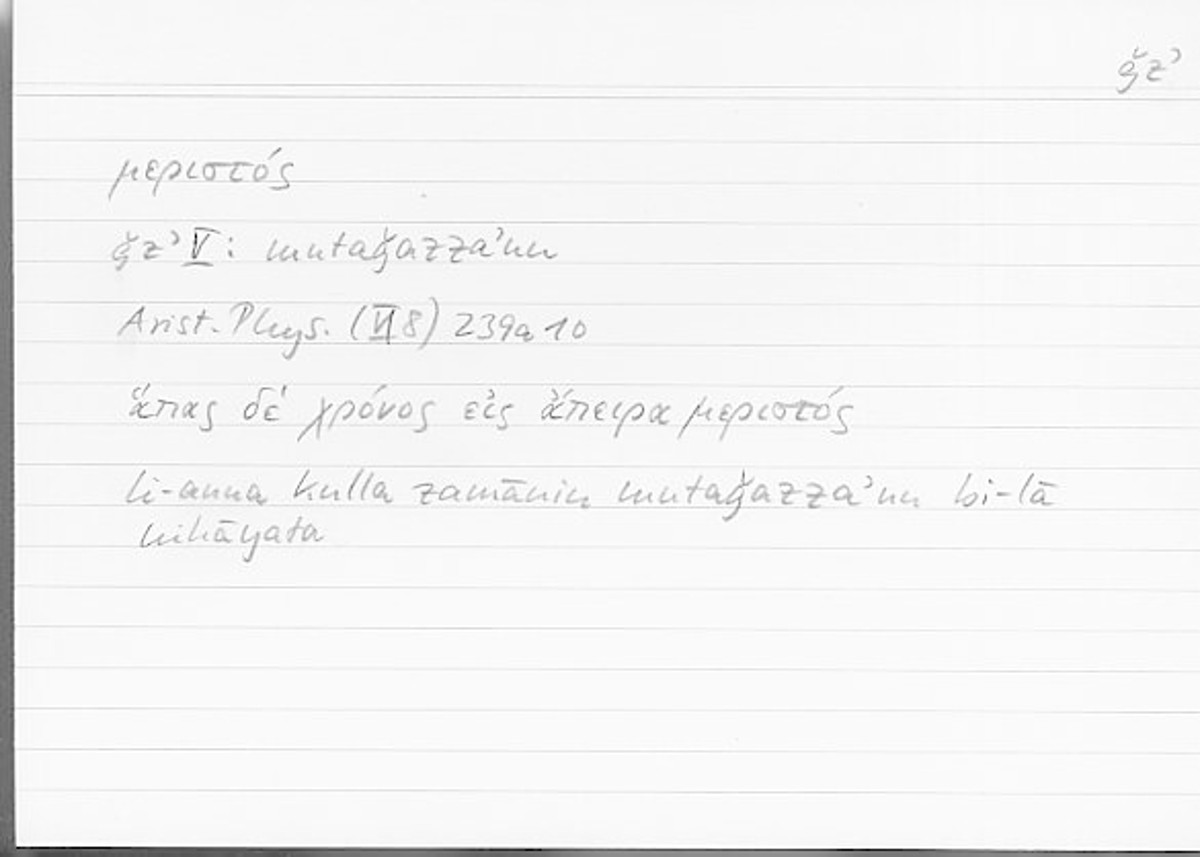 ǧzʾ
μεριστός
ǧzʾ V: mutaǧazzaʾun
Arist. Phys. (VI 8) 239a10
ἅπας δὲ χρόνος εἰς ἄπειρα μεριστός
li-anna kulla zamānin mutaǧazzaʾun bi-lā
nihāyata